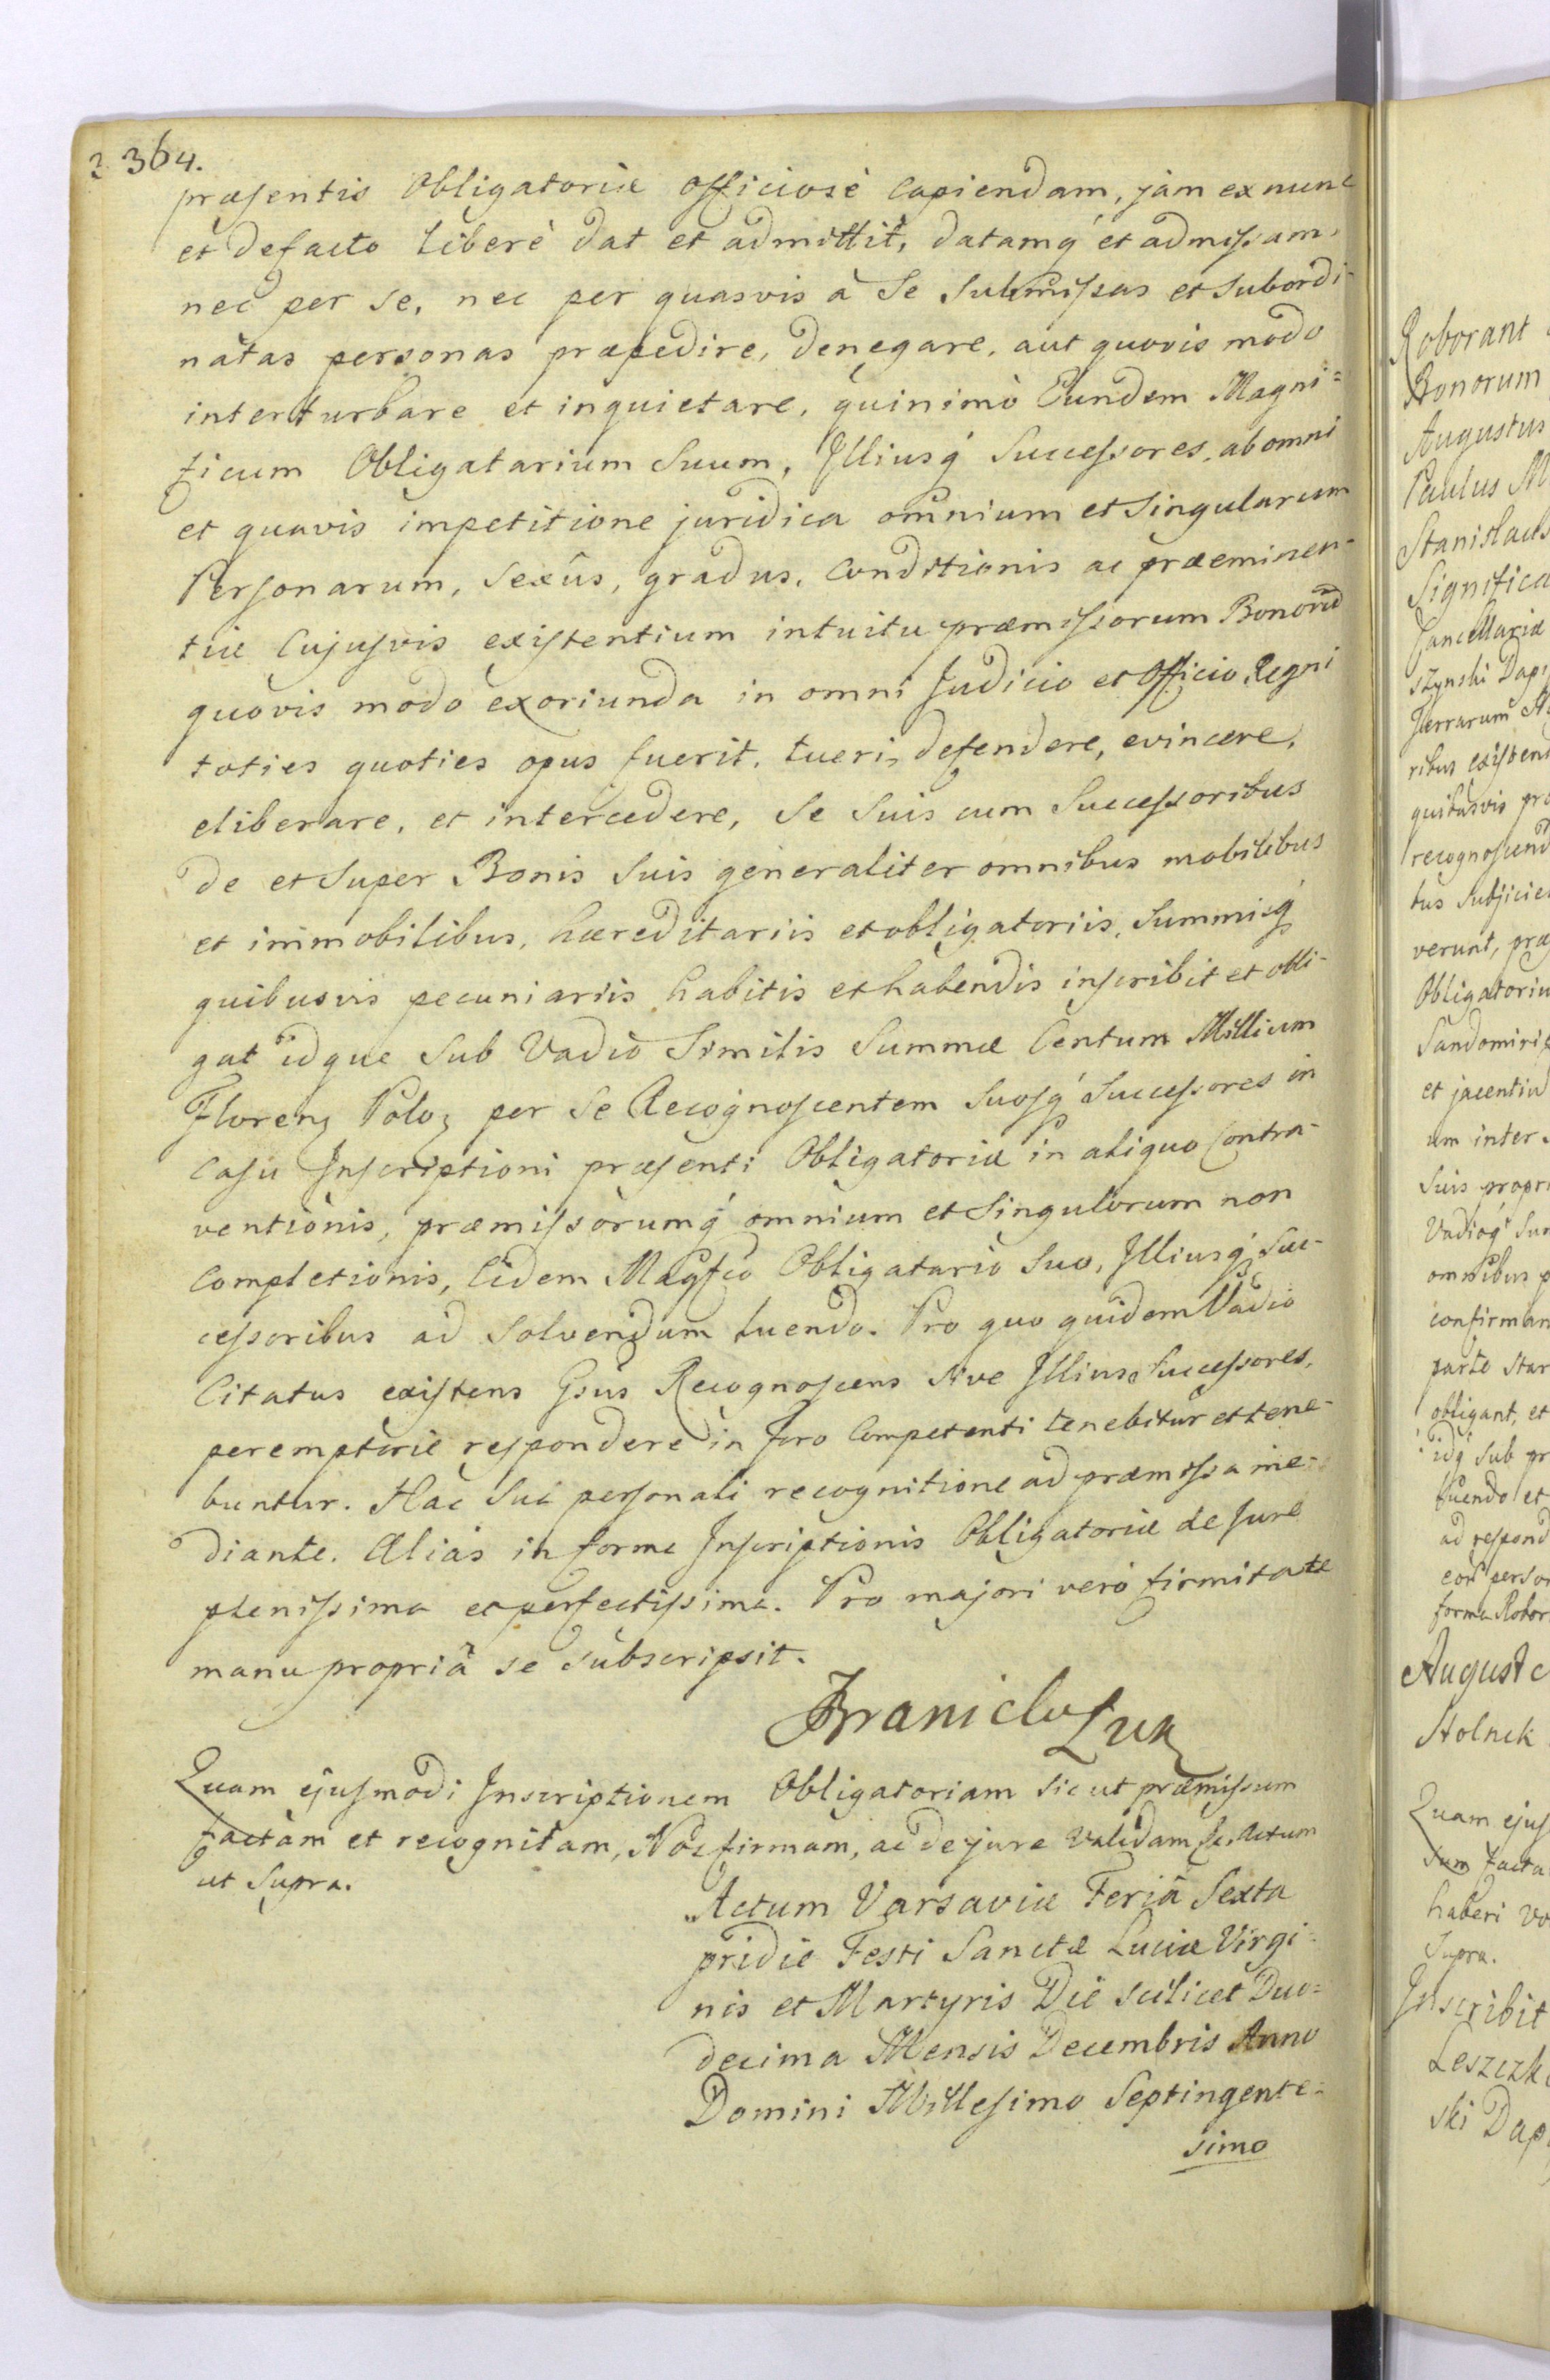 364.
præsentis Obligatoriæ officiosè capiendam, jam ex nunc
et defacto liberè dat et admittit, datamq́ et admissam,
nec per se, nec per quasvis à Se Submissas et Subordi-
natas personas præpedire, denegare, aut quovis modo
interturbare et inquietare, quinimò Eundem Magni=
ficum Obligatarium Suum, Illiusq́ Successores, ab omni
et quavis impetitione juridica omnium et Singularum
Personarum, Sexûs, gradus, Conditionis ac præeminen-
tiæ Cujusvis existentium intuitu præmissorum Bonorũ
quovis modo exoriunda in omni Judicio et Officio Regni
toties quoties opus fuerit, tueri, defendere, evincere,
eliberare, et intercedere, Se Suis cum Successoribus
de et Super Bonis Suis generaliter omnibus mobilibus
et immobilibus, hæreditariis et obligatoriis, Summisq́
quibusvis pecuniariis habitis et habendis inscribit et obli-
gat idque Sub Vadio Similis Summæ Centum Millium
Floren; Polo; per Se Recognoscentem Suosq́ Successores in
Casu Inscriptioni præsenti Obligatoriæ in aliquo Contra-
ventionis, præmissorumq́ omnium et Singulorum non
Completionis, Eidem Magfco Obligatario Suo, Illiusq́ Suc-
cessoribus ad Solvendum luendo. Pro quo quidem Vadio
Citatus existens Gsus Recognoscens sive Illius Successores,
peremptoriè respondere in Foro Competenti tenebitur et tene-
buntur. Hac Sui personali recognitione ad præmissa me-
diante. Alias in forma Inscriptionis Obligatoriæ de Jure
plenissima et perfectissima. Pro majori verò firmitate
manu propriâ se Subscripsit.
Quam ejusmodi Inscriptionem Obligatoriam sic ut præmissum
factam et recognitam, Nos firmam, ac de jure validam &c. Actum
ut Supra.
Actum Varsaviæ Feriâ Sexta
pridie Festi Sanctæ Luciæ Virgi-
nis et Martyris Die scilicet Duo=
decima Mensis Decembris Anno
Domini Millesimo Septingente=
simo
Roborant
Bonorum
Augustus
Paulus M
Stanislaus
Significa
Cancellariæ
szynski Dapi
Terrarum
ribus existent
quibusvis pro
recognoscend
tus Subjicie
verunt, præ
Obligatoriu
Sandomiri
et jacentiũ
um inter
Suis propri
Vadioq́ Sum
omnibus p
confirman
parte Star
obligant, et
idq́ Sub pr
luendo et
ad respond
eoĩ person
forma Robor
August
Stolnik
Quam ejus
sum facta
haberi vo
Supra.
Inscribit
Leszczk
ski Dap